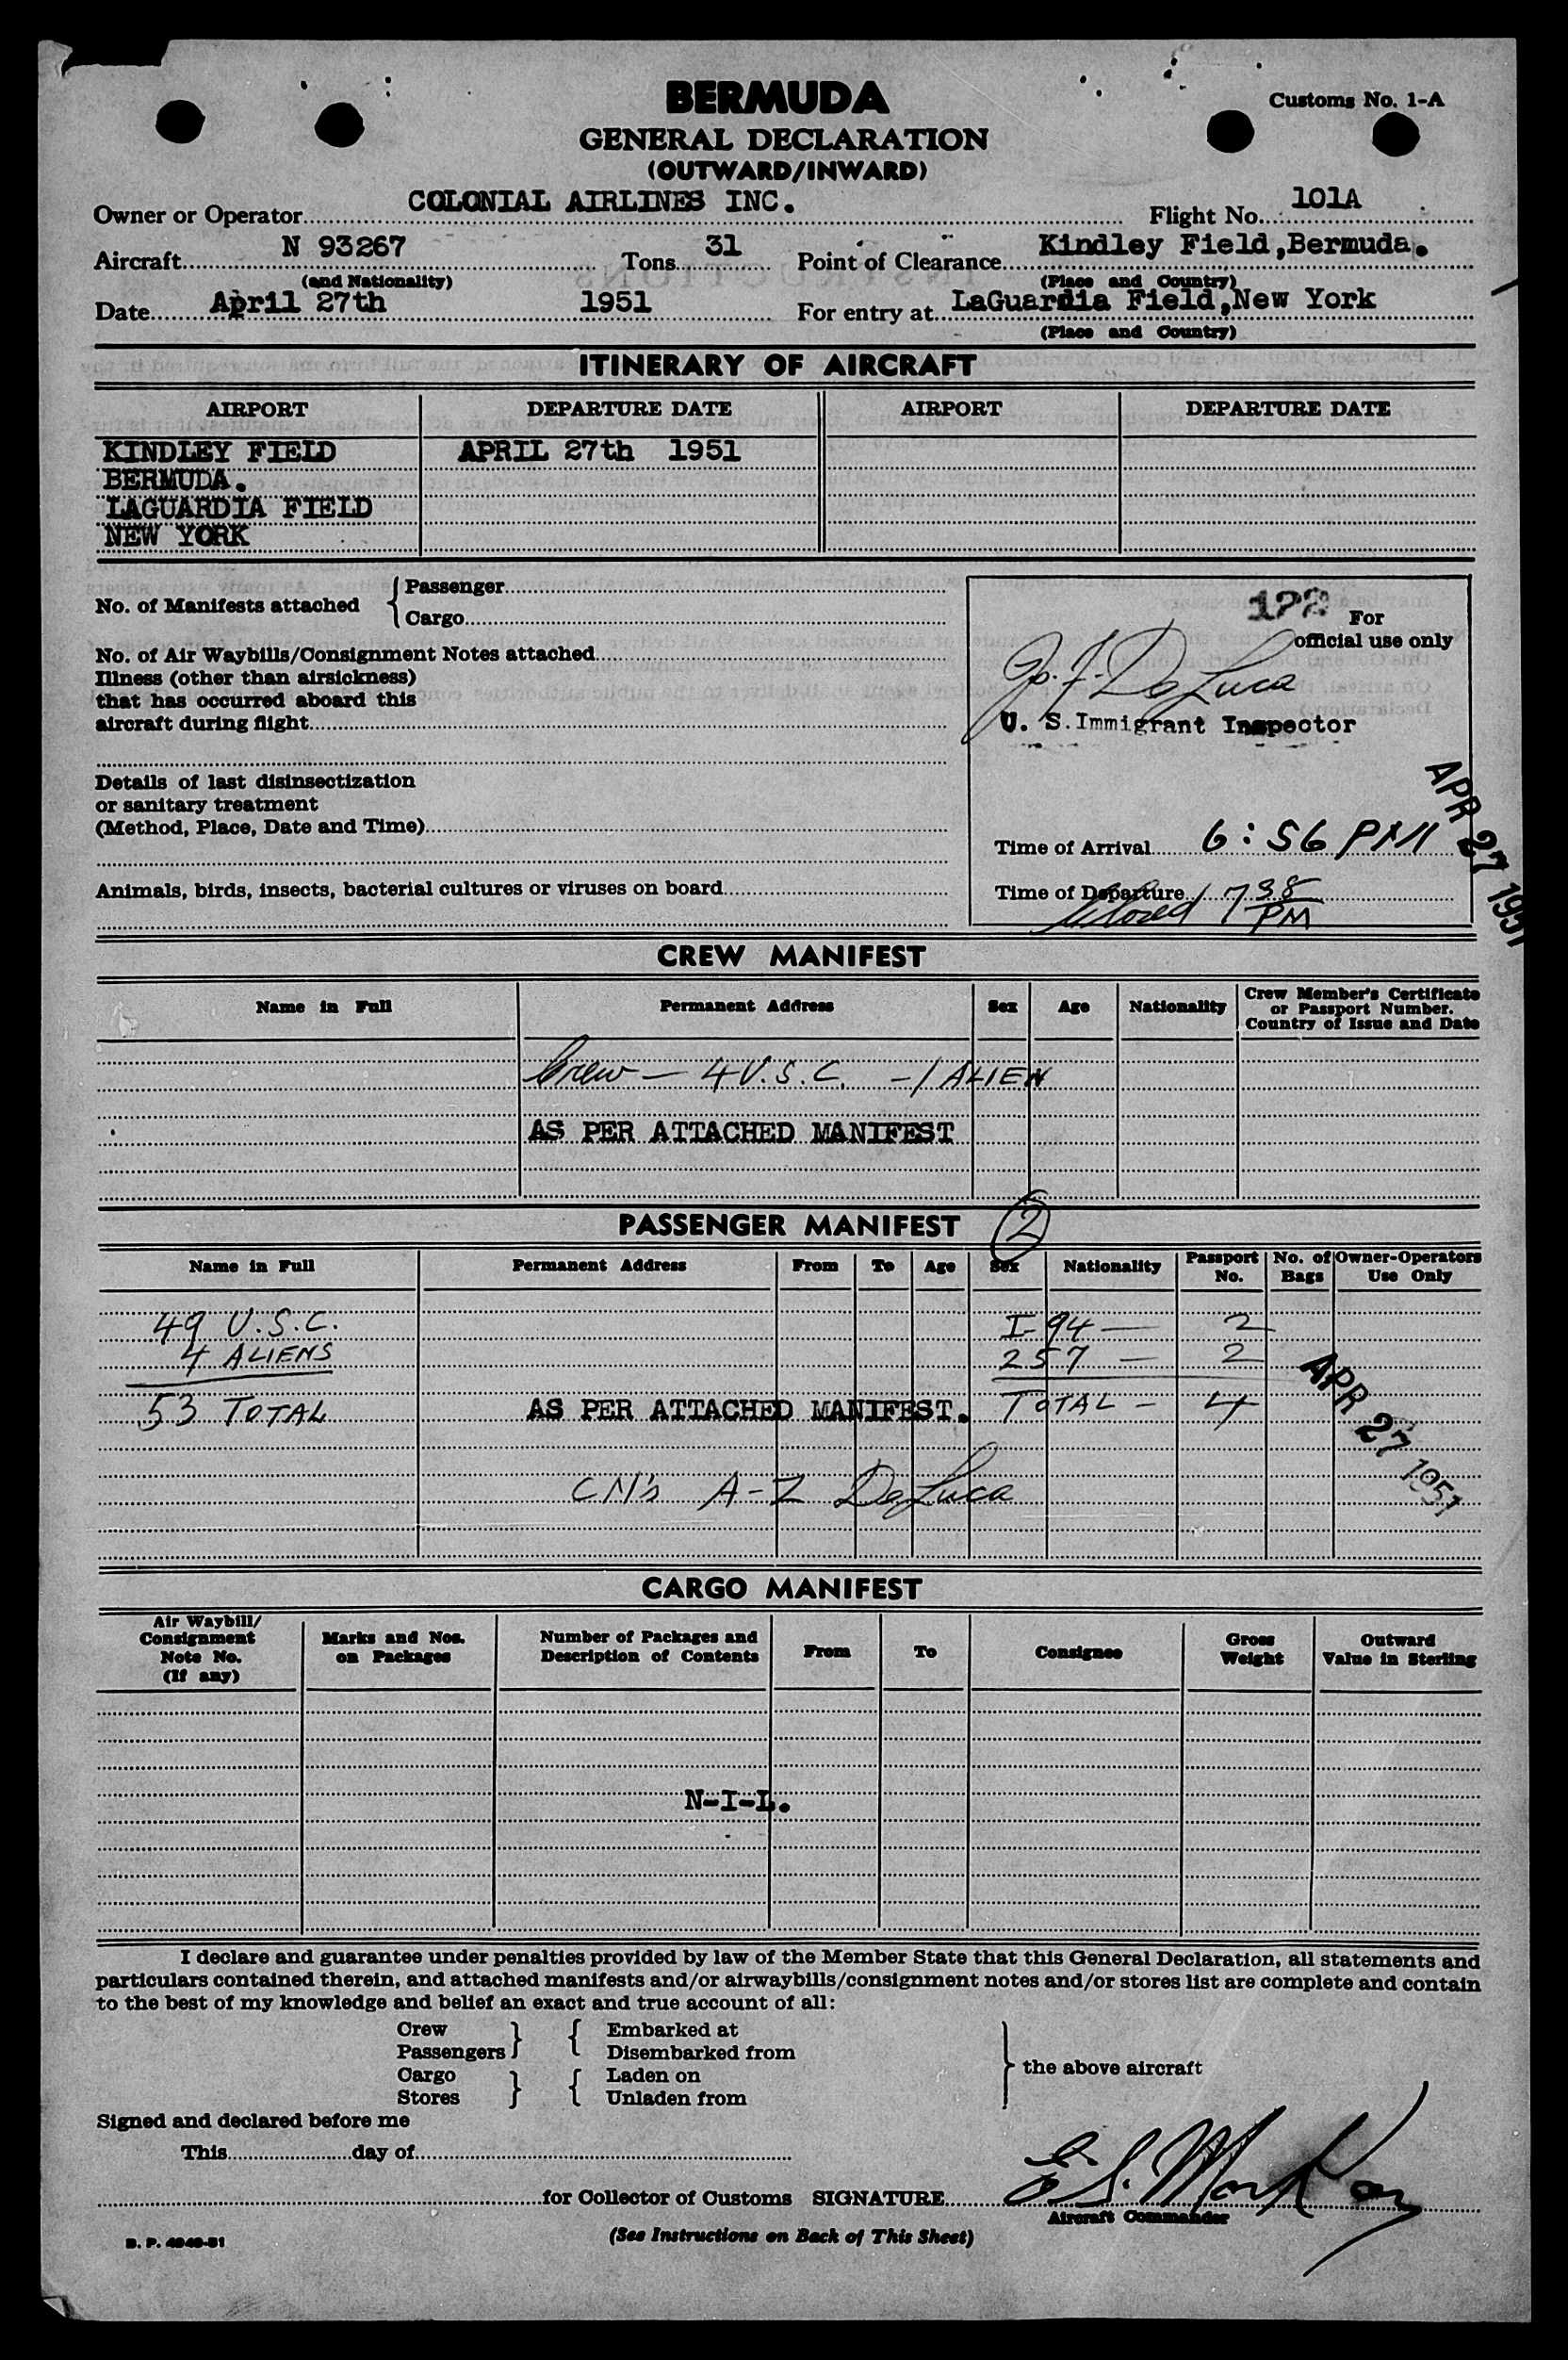 BERMUDA
Customs No. 1-A
GENERAL DECLARATION
(OUTWARD/INWARD)
Owner or Operator COLONIAL AIRLINES INC. Flight No. 101A
Aircraft N 93267 Tons 31 Point of Clearance Kindley Field, Bermuda.
(and Nationality) (Place and Country)
Date April 27th 1951 For entry at LaGuardia Field, New York
(Place and Country)
ITINERARY OF AIRCRAFT
AIRPORT DEPARTURE DATE AIRPORT DEPARTURE DATE
KINDLEY FIELD APRIL 27th 1951
BERMUDA.
LAGUARDIA FIELD
NEW YORK
No. of Manifests attached { Passenger
Cargo
No. of Air Waybills/Consignment Notes attached
Illness (other than airsickness)
that has occurred aboard this
aircraft during flight
Details of last disinsectization
or sanitary treatment
(Method, Place, Date and Time)
Animals, birds, insects, bacterial cultures or viruses on board
122 For
official use only
DeLuca
U. S. Immigrant Inspector
APR 27 1951
Time of Arrival 6:56 PM
Time of Departure 7 38
PM
CREW MANIFEST
Name in Full Permanent Address Sex Age Nationality Crew Member's Certificate
or Passport Number.
Country of Issue and Date
Crew — 4 U.S.C. - 1 ALIEN
AS PER ATTACHED MANIFEST
PASSENGER MANIFEST 2
Name in Full Permanent Address From To Age Sex Nationality Passport No. No. of Bags Owner-Operators Use Only
49 U.S.C. I-94 — 2
4 ALIENS 257 — 2
53 TOTAL AS PER ATTACHED MANIFEST. TOTAL - 4
APR 27 1951
CM's A-Z DeLuca
CARGO MANIFEST
Air Waybill/
Consignment
Note No.
(If any)
Marks and Nos.
on Packages
Number of Packages and
Description of Contents
From To Consignee
Gross
Weight
Outward
Value in Sterling
N-I-L.
I declare and guarantee under penalties provided by law of the Member State that this General Declaration, all statements and
particulars contained therein, and attached manifests and/or airwaybills/consignment notes and/or stores list are complete and contain
to the best of my knowledge and belief an exact and true account of all:
Crew } { Embarked at
Passengers Disembarked from
} the above aircraft
Cargo } { Laden on
Stores Unladen from
Signed and declared before me
This day of
for Collector of Customs SIGNATURE
Aircraft Commander
(See Instructions on Back of This Sheet)